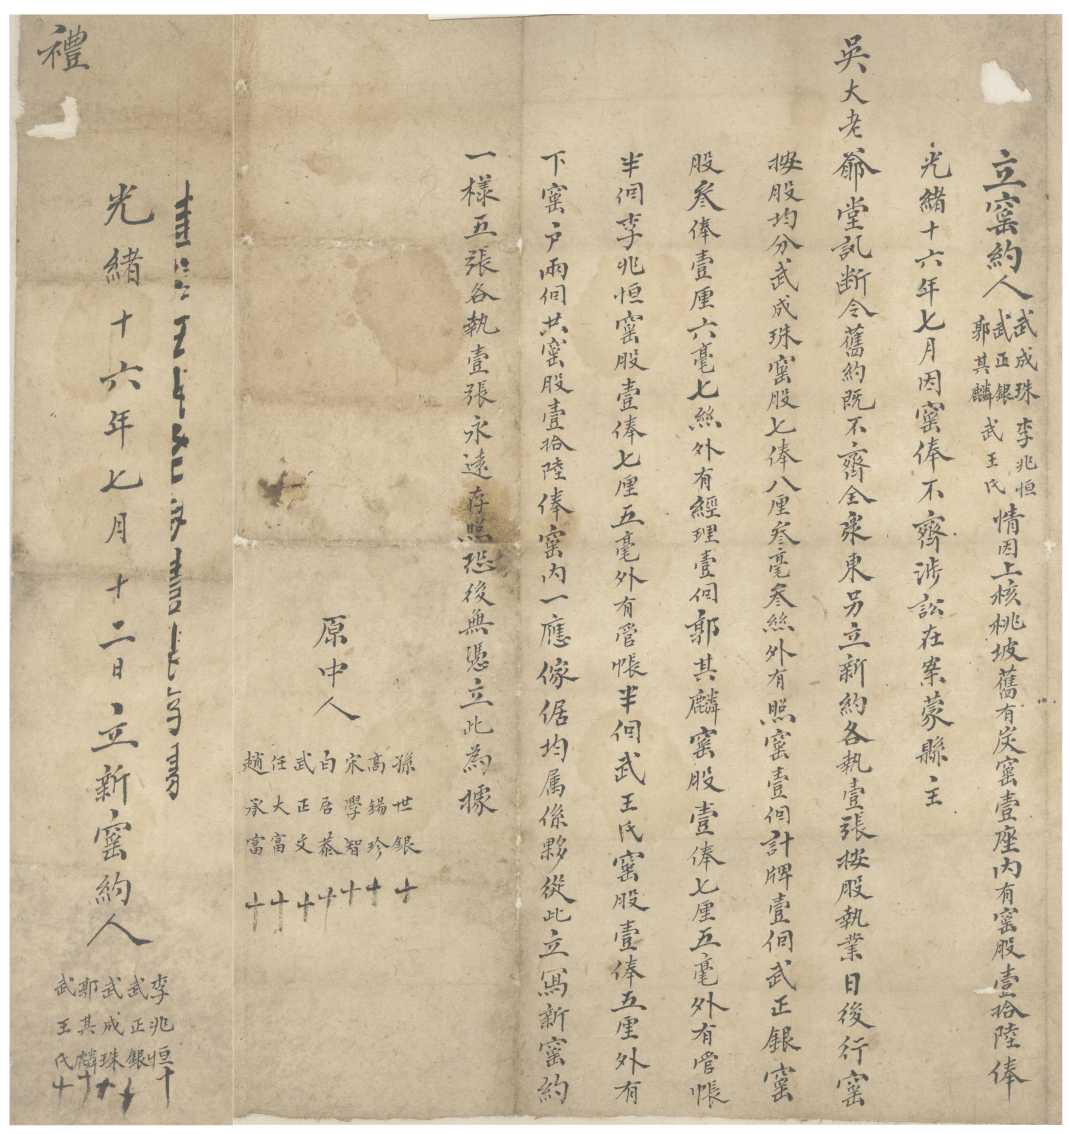 立窰約人武成珠 李兆恒 武正銀 武王氏 郭其麟 情因上核桃坡舊有炭窰壹座內有窰股壹拾陸俸
光緒十六年七月因窰俸不齊涉訟在案蒙縣主
吳大老爺堂訊斷令舊約既不齊全衆東另立新約各執壹張按股執業日後行窰
按股均分武成珠窰股七俸八厘叁毫叁絲外有照窰壹佰計牌壹佰武正銀窰
股叁俸壹厘六毫七絲外有經理壹佰郭其麟窰股壹俸七厘五毫外有管帳
半佰李兆恒窰股壹俸七厘五毫外有管帳半佰武王氏窰股壹俸五厘外有
下窰戶兩佰共窰股壹拾陸俸窰內一應傢倨均属係夥從此立寫新窰約
一樣五張各執壹張永遠存照恐後無憑立此為據
原中人
孫世銀 十
高錫珍 十
宋學智 十
白居恭 十
武正文 十
任大富 十
趙承富 十
光緒十六年七月十二日立新窰約人
李兆恒 十
武正銀 十
武成珠 十
郭其麟 十
武王氏 十
禮